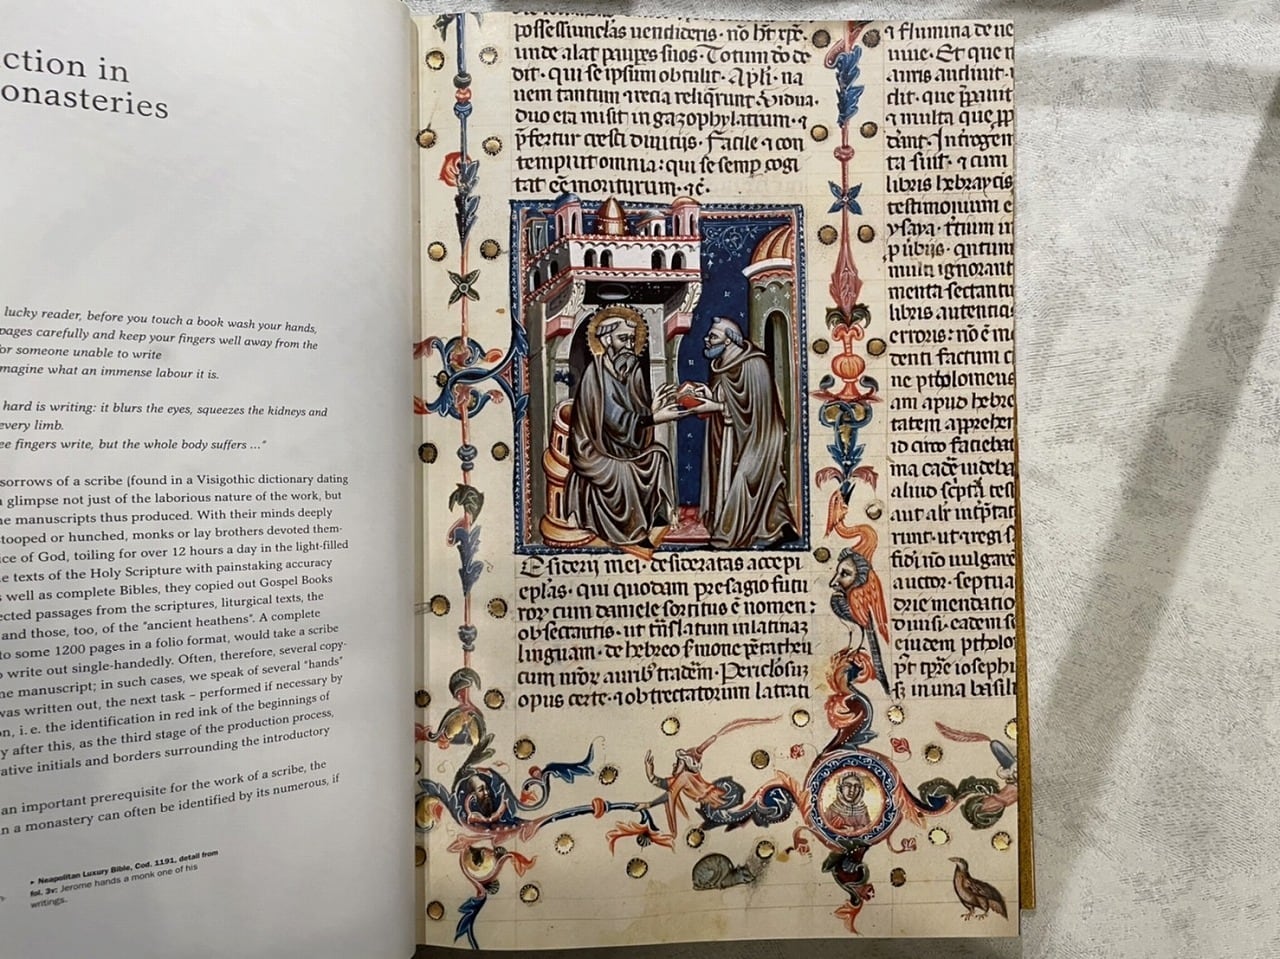 ction in
onasteries
lucky reader, before you touch a book wash your hands,
pages carefully and keep your fingers well away from the
or someone unable to write
magine what an immense labour it is.
hard is writing: it blurs the eyes, squeezes the kidneys and
every limb.
ee fingers write, but the whole body suffers ..."
sorrows of a scribe (found in a Visigothic dictionary dating
glimpse not just of the laborious nature of the work, but
e manuscripts thus produced. With their minds deeply
stooped or hunched, monks or lay brothers devoted them-
ice of God, toiling for over 12 hours a day in the light-filled
e texts of the Holy Scripture with painstaking accuracy
s well as complete Bibles, they copied out Gospel Books
ected passages from the scriptures, liturgical texts, the
and those, too, of the "ancient heathens". A complete
to some 1200 pages in a folio format, would take a scribe
o write out single-handedly. Often, therefore, several copy-
ne manuscript; in such cases, we speak of several "hands"
was written out, the next task – performed if necessary by
on, i. e. the identification in red ink of the beginnings of
y after this, as the third stage of the production process,
rative initials and borders surrounding the introductory
an important prerequisite for the work of a scribe, the
n a monastery can often be identified by its numerous, if
▸ Neapolitan Luxury Bible, Cod. 1191, detail from
fol. 3v: Jerome hands a monk one of his
writings.
possessiunclas uendideris · nō hʒ xpē.
unde alat paupes suos · Totum dō de
dit · qui se ipsum obtulit · Apli · na
uem tantum ⁊ recia reliqrunt · Vidua ·
duo era misit in gazophylatium · ⁊
p̄fertur cresci diuitijs · Facile ⁊ con
tempnit omnia: qui se semp cogi
tat eē moriturum · ⁊č.
Esiderij mei · desideratas accepi
eplas · qui quodam presagio futu
ror cum daniele sortitus ē nomen:
obsecrantis · ut trīslatum in latinaz
linguam · de hebreo smone pētatheu
cum nrōr auribʒ tradem · Periclosuz
opus certe · ⁊ obtrectatorum latrati
⁊ flumina de ue
uiue · Et que n
auris audiuit ·
dit · que p̄parauit
⁊ multa que pp
dint · Introgem
ta sunt · ⁊ cum
libris hebraycis
testimonium e
ysaya · tertium in
muli ignorant
menta sectantu
libris autenticis
erroris: nō ē m
denti factum c
ne ptholomeus
am apud hebre
tatem apprehen
id circo faciebat
aut alr interpretat
runt · ut ⁊ regi s
fidi nō uulgare
auctor · septua
drie mendatio
diuisi · eadem s
eiudem ptholo
sʒ in una basili